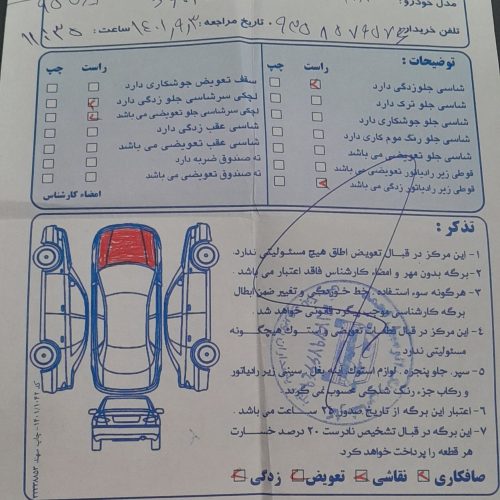 مدل خودرو :
تلفن خریدار: تاریخ مراجعه : ۱۴۰۱,۹,۳ ساعت : ۱۱:۳۵
توضیحات :
راست چپ
شاسی جلوزدگی دارد
شاسی جلو ترک دارد
شاسی جلو جوشکاری دارد
شاسی جلو رنگ موم کاری دارد
شاسی جلو تعویضی می باشد
قوطی زیر رادیاتور تعویضی می باشد
قوطی زیر رادیاتور زدگی می باشد
راست چپ
سقف تعویض جوشکاری دارد
لچکی سرشاسی جلو زدگی دارد
لچکی سرشاسی جلو تعویضی می باشد
شاسی عقب زدگی دارد
شاسی عقب تعویضی می باشد
ته صندوق ضربه دارد
ته صندوق تعویضی می باشد
امضاء کارشناس
تذکر :
۱- این مرکز در قبال تعویض اطاق هیچ مسئولیتی ندارد.
۲- برگه بدون مهر و امضاء کارشناس فاقد اعتبار می باشد .
۳- هرگونه سوء استفاده، خط خوردگی و تغییر ضمن ابطال
برگه کارشناسی موجب پیگرد قانونی خواهد شد.
۴- این مرکز در قبال قطعات تعویضی و استوک هیچگونه
مسئولیتی ندارد.
۵- سپر، جلو پنجره، لوازم استوک، لبه بغل، سینی زیر رادیاتور
و رکاب جزء رنگ شدگی محسوب می گردد.
۶- اعتبار این برگه از تاریخ صدور ۲۵ ساعت می باشد .
۷- این برگه در قبال تشخیص نادرست ۲۰ درصد خسارت
هر قطعه را پرداخت خواهد کرد.
صافکاری نقاشی تعویض زدگی